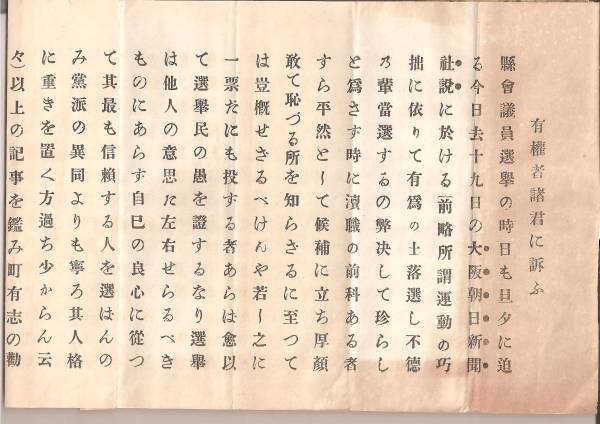 有權者諸君に訴ふ
縣會議員選擧の時日も旦夕に迫
る今日去十九日の大阪朝日新聞
社說に於ける(前略所謂運動の巧
拙に依りて有爲の士落選し不德
乃輩當選するの弊决して珍らし
と爲さす時に瀆職の前科ある者
すら平然として候補に立ち厚顏
敢て恥づる所を知らざるに至つて
は豈慨せざるべけんや若し之に
一票だにも投する者あらは愈以
て選擧民の愚を證するなり選擧
は他人の意思に左右せらるべき
ものにあらす自巳の良心に從つ
て其最も信賴する人を選はんの
み黨派の異同よりも寧ろ其人格
に重きを置く方過ち少からん云
々)以上の記事を鑑み町有志の勸